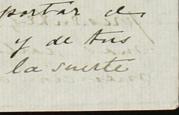 portar d
y de tus
la suerte